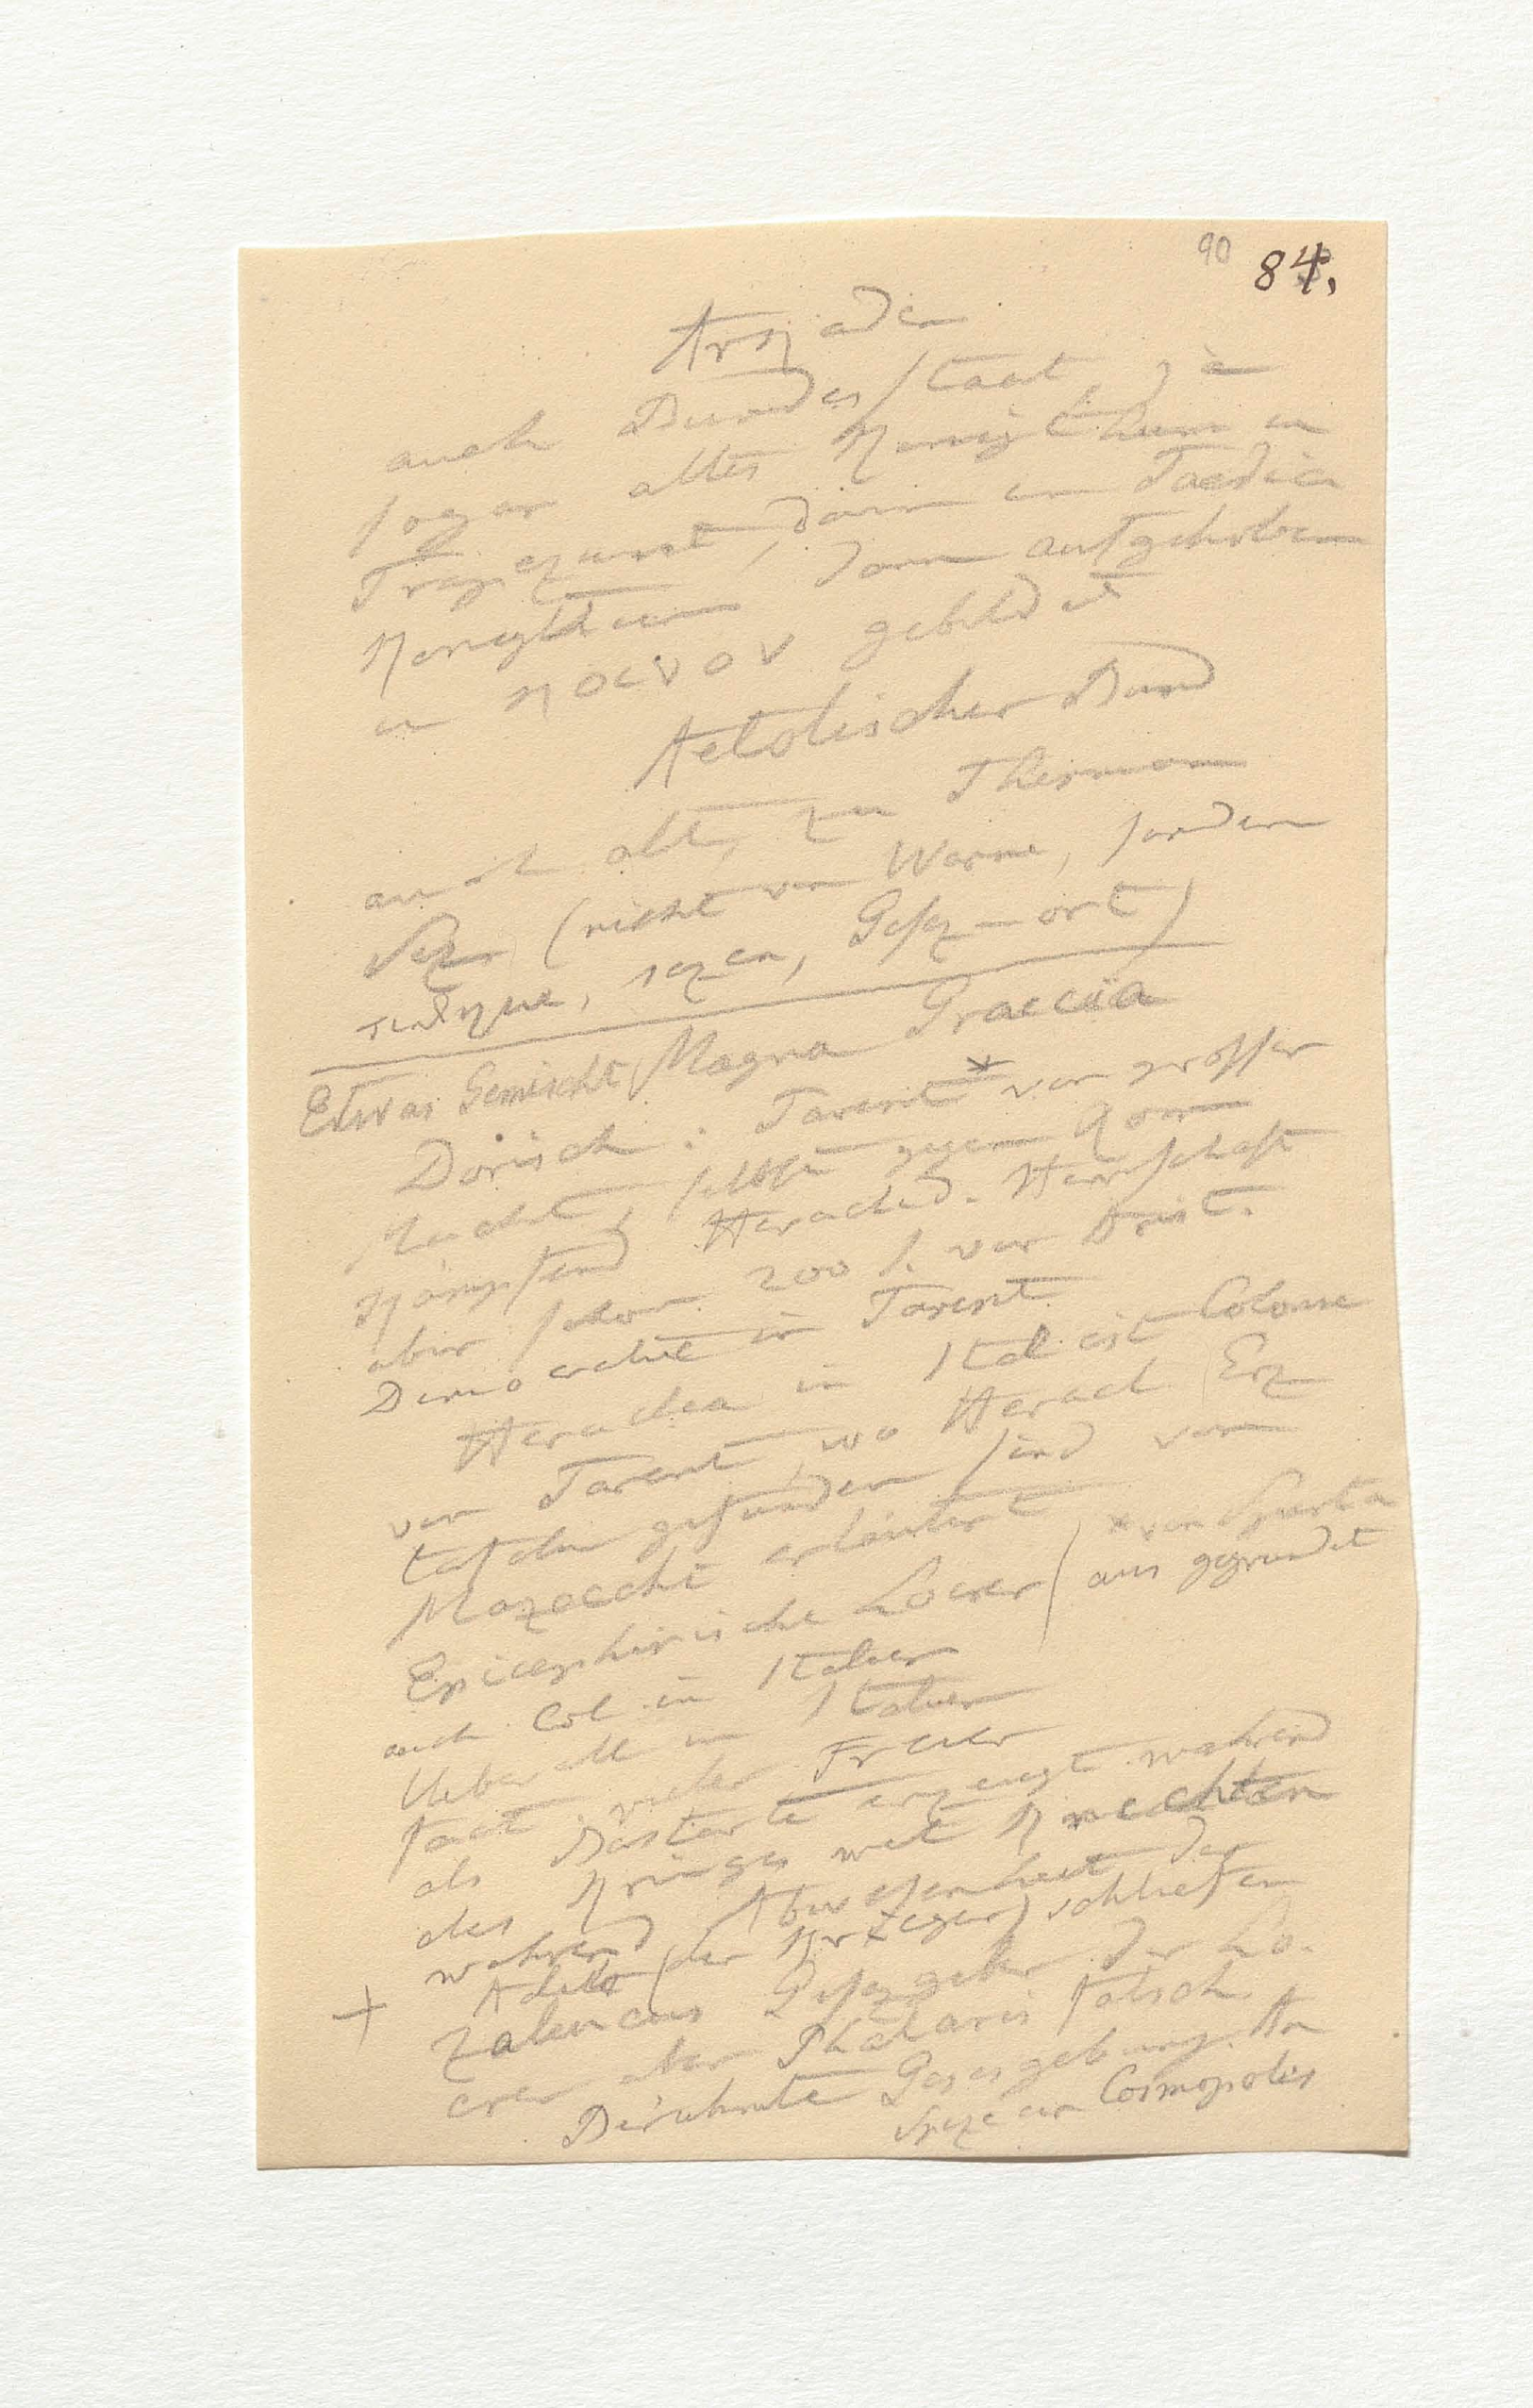 90 84.
Arkaden
auch Bundesstaat, ja
sogar altes Königthum in
Trapezunt, dann in
Königthum, dann aufgehoben
u κοινον gebildet
Aetolischer Bund
auch alt, zu Thermon
(nicht von Wärme, sondern
τιθημι, sezen, Gesez-ort)
Etwas Gemischt Magna Graecia
Dorisch: Tarent* von grosser
Macht, selbst gegen Rom
kämpfend Heraclid. Herrschaft
aber schon 200 J. vor Arist.
Democratie in Tarent
Heraclea in Ital ist Colonie
von Tarent, wo Heracl Erz
tafeln gefunden sind von
Mazocchi erläutert
* von Sparta
aus gegründet
Epicephirische Locrer
auch Col. in Italien
Ueberall in Italien
fast vieler Freier
als Bastarte erzeugt während
des Krieges mit Knechten
während Abwesenheit der
Adels (der Krieger) schliefen
+ Zaleucus Gesezgeber der Lo-
crer aber Phalaris falsch
Berühmte Gesezgebung. An
Spize ein Cosmopolis